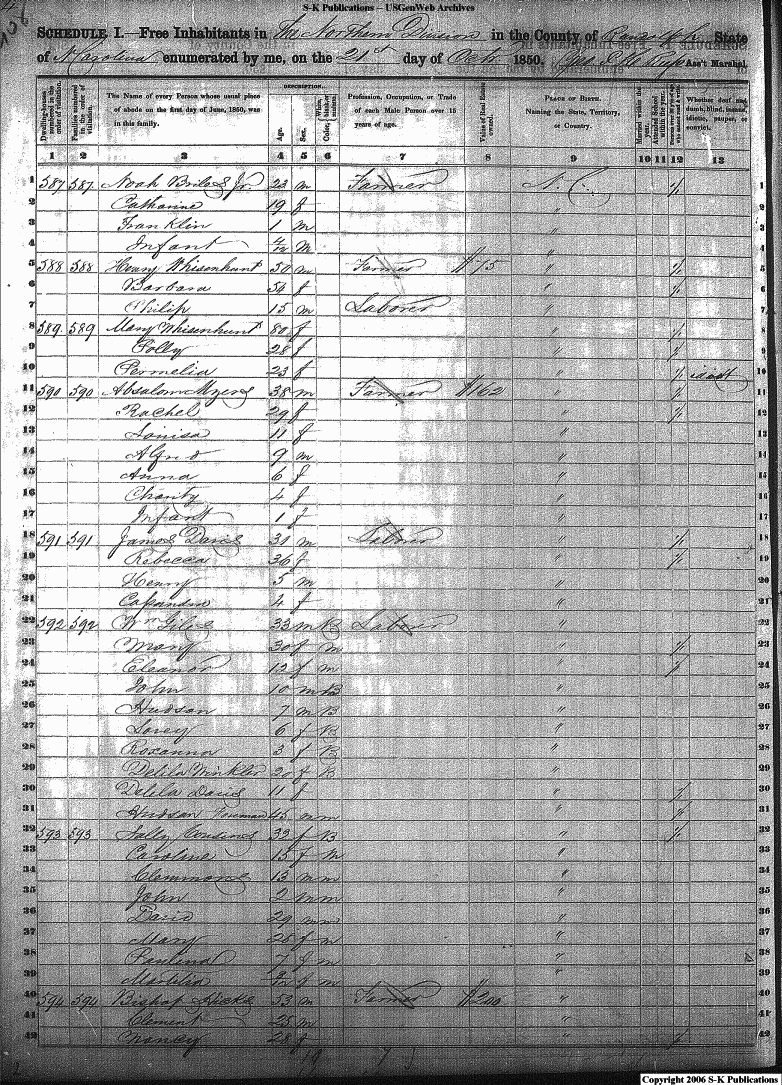 S-K Publications -- USGenWeb Archives
SCHEDULE I.—Free Inhabitants in The Northern Division in the County of Randolph State
of N Carolina enumerated by me, on the 21st day of Octr 1850. Ass't Marshal.
DESCRIPTION.
Dwelling-houses numbered in the order of visitation. Families numbered in the order of visitation. The Name of every Person whose usual place of abode on the first day of June, 1850, was in this family. Age. Sex. Color, White, black, or mulatto. Profession, Occupation, or Trade of each Male Person over 15 years of age. Value of Real Estate owned. PLACE OF BIRTH. Naming the State, Territory, or Country. Married within the year. Attended School within the year. Persons over 20 y'rs of age who cannot read & write. Whether deaf and dumb, blind, insane, idiotic, pauper, or convict.
1 2 3 4 5 6 7 8 9 10 11 12 13
1 587 587 Noah Briles Jr. 23 m Farmer N. C. / 1
2 Catharine 19 f " 2
3 Franklin 1 m " 3
4 Infant m " 4
5 588 588 Henry Whisenhunt 50 m Farmer $75 " / 5
6 Barbara 54 f " / 6
7 Philip 15 m Laborer " 7
8 589 589 Mary Whisenhunt 80 f " / 8
9 Polly 28 f " / 9
10 Permelia 23 f " / 10
11 590 590 Absalom Myers 38 m Farmer $162 " / 11
12 Rachel 29 f " / 12
13 Louisa 11 f " 13
14 Alfred 9 m " 14
15 Anna 6 f " 15
16 Charity 4 f " 16
17 Infant 1 f " 17
18 591 591 James Davis 30 m Laborer " / 18
19 Rebecca 36 f " / 19
20 Henry 5 m " 20
21 4 f " 21
22 592 592 Wm Giles 33 m B Laborer " 22
23 Mary 30 f m " / 23
24 Eleanor 12 f m " / 24
25 John 10 m B " 25
26 Hudson 7 m B " 26
27 6 f B " 27
28 Roxanna 3 f B " 28
29 Delila Winkler 20 f B " 29
30 Delila Davis 11 f " / 30
31 Hudson Freeman 45 m m " / 31
32 593 593 Sally Cousins 32 f B " / 32
33 Caroline 15 f m " 33
34 Clemmons 13 m m " 34
35 John 2 m m " 35
36 David 29 m m " 36
37 Mary 25 f m " 37
38 Paulina 7 f m " 38
39 f m " 39
40 594 594 Bishop Hicks 53 m Farmer $200 " 40
41 Clement 25 m " 41
42 28 f " / 42
Copyright 2006 S-K Publications